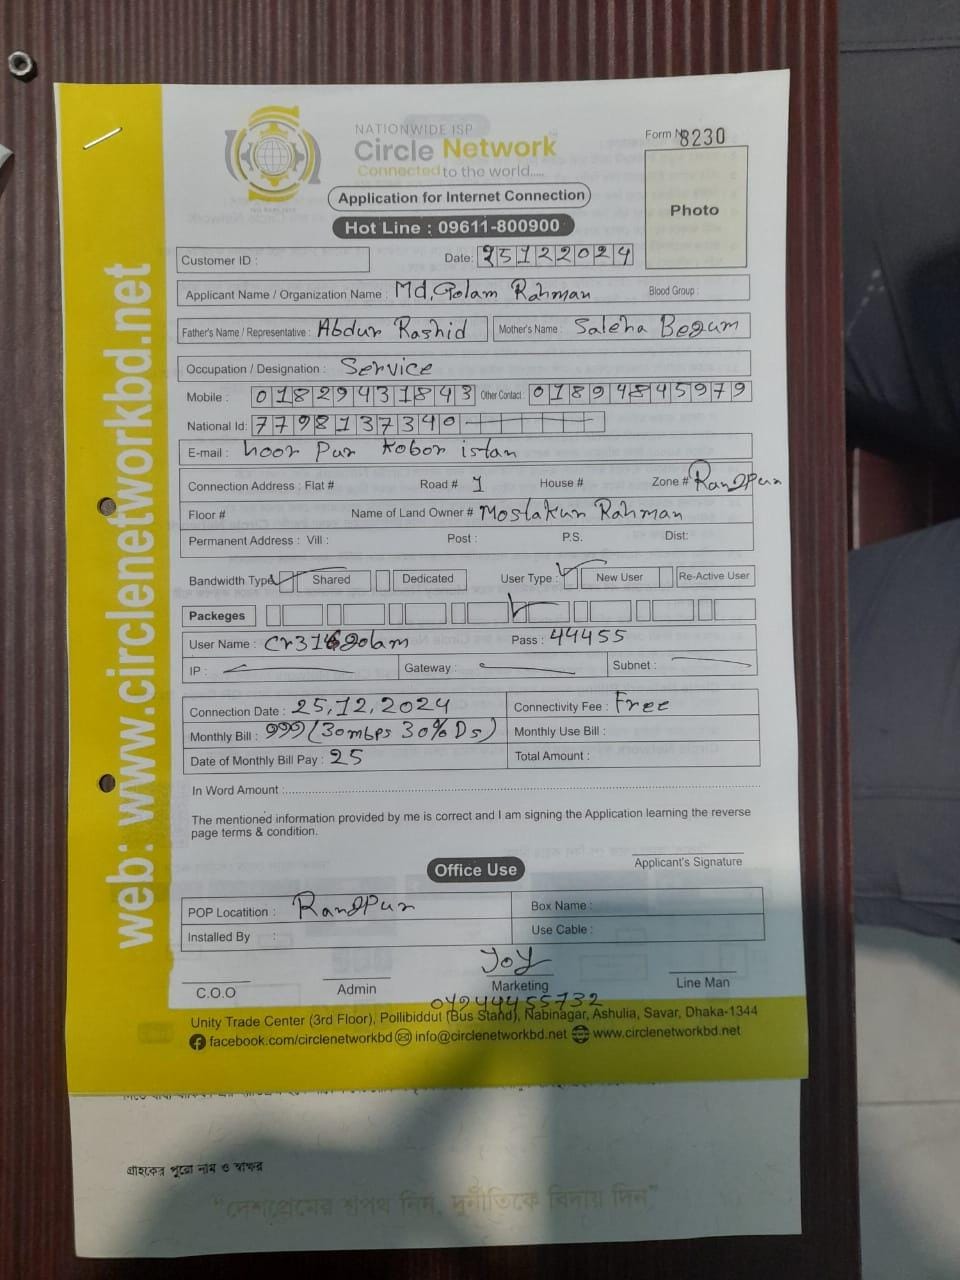 NATIONWIDE ISP
Circle Network
Connected to the world.....
Form N 8230
Photo
Application for Internet Connection
Hot Line : 09611-800900
Customer ID :
Date: 25122024
Applicant Name / Organization Name : Md, Golam Rahman Blood Group :
Father's Name / Representative : Abdur Rashid Mother's Name : Saleha Begum
Occupation / Designation : Service
Mobile : 01829431843 Other Contact : 01894845979
National Id: 7798137340
E-mail : hoor Pur Kobor istan
Connection Address : Flat # Road # 1 House # Zone # Rangpur
Floor # Name of Land Owner # Mostakur Rahman
Permanent Address : Vill : Post : P.S. Dist:
Bandwidth Type Shared Dedicated User Type : New User Re-Active User
Packeges
User Name : Pass : 44455
IP : Gateway : Subnet :
Connection Date : 25,12,2024 Connectivity Fee : Free
Monthly Bill : 999 (30mbps 30% Ds) Monthly Use Bill :
Date of Monthly Bill Pay : 25 Total Amount :
In Word Amount :
The mentioned information provided by me is correct and I am signing the Application learning the reverse
page terms & condition.
Applicant's Signature
Office Use
POP Locatition : Rangpur Box Name :
Installed By : Use Cable :
Joy
C.O.O Admin Marketing Line Man
Unity Trade Center (3rd Floor), Pollibiddul (Bus Stand), Nabinagar, Ashulia, Savar, Dhaka-1344
facebook.com/circlenetworkbd info@circlenetworkbd.net www.circlenetworkbd.net
web: www.circlenetworkbd.net
গ্রাহকের পুরো নাম ও স্বাক্ষর
“দেশপ্রেমের শপথ নিন, দুর্নীতিকে বিদায় দিন”